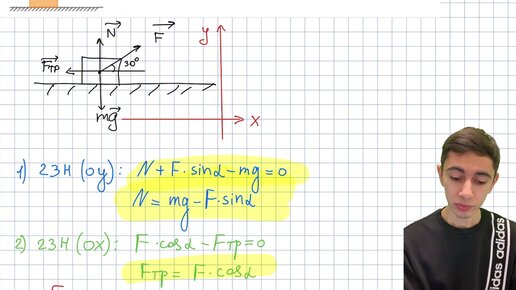 N F
Fтр 30° y
mg x
1) 2ЗН (оу): N + F · sinα – mg = 0
N = mg – F · sinα
2) 2ЗН (ох): F · cosα – Fтр = 0
Fтр = F · cosα
adidas adidas